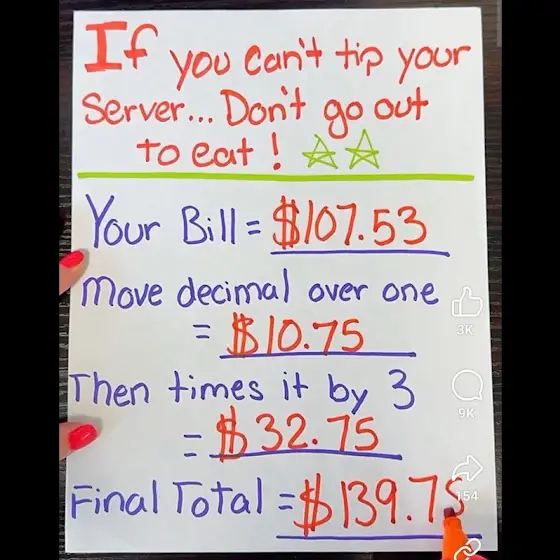 If you can't tip your
server... Don't go out
to eat!
Your Bill = $107.53
Move decimal over one
= $10.75
Then times it by 3
= $32.75
Final Total = $139.75
3K
9K
154